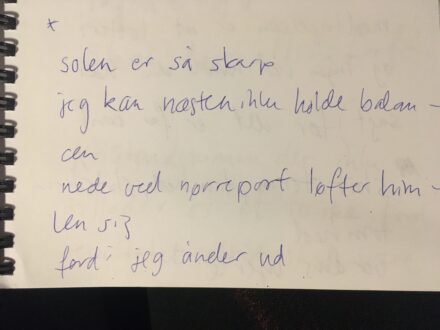 *
solen er så skarp
jeg kan næsten ikke holde balan-
cen
nede ved nørreport løfter him-
len sig
fordi jeg ånder ud